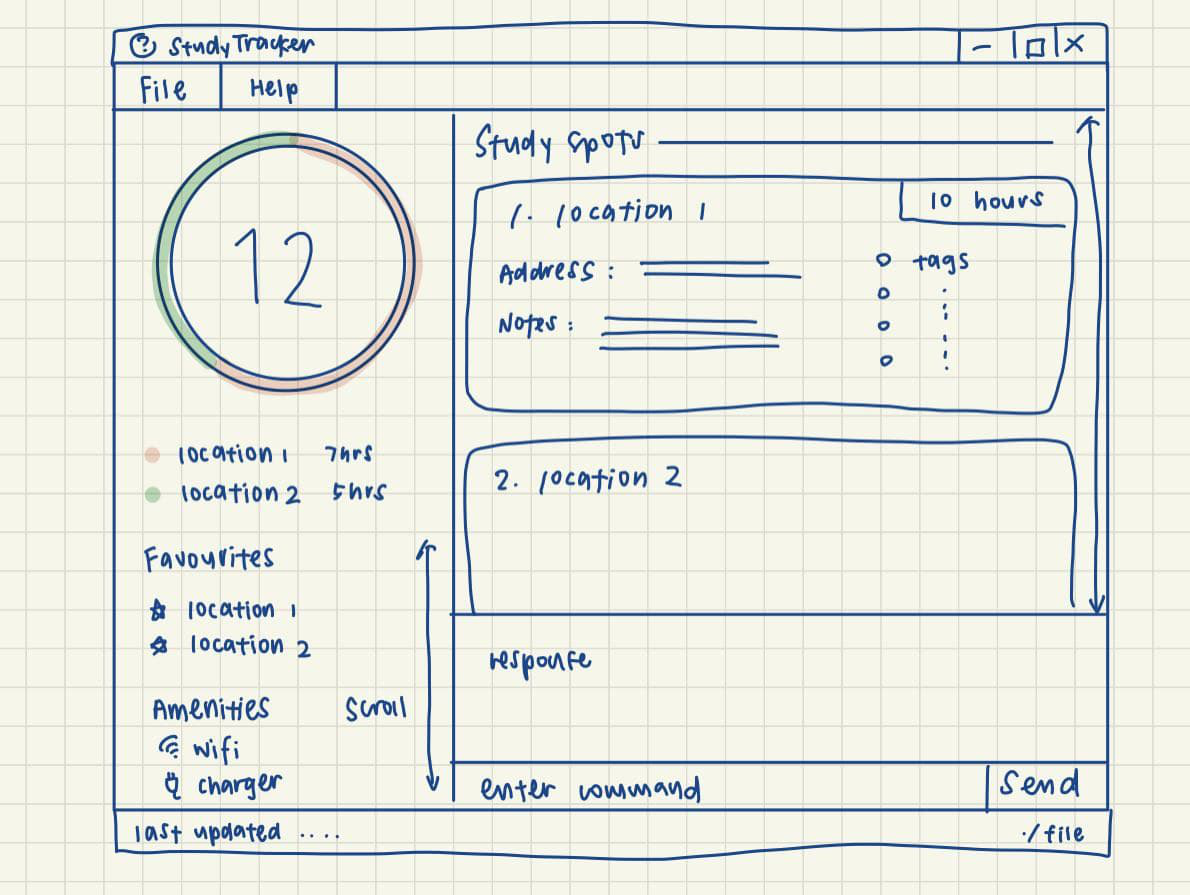 StudyTracker
File Help
12
location 1 7hrs
location 2 5hrs
Favourites
location 1
location 2
Amenities scroll
wifi
charger
Study spots
1. location 1 10 hours
Address : tags
Notes :
2. location 2
response
enter command Send
last updated .... ./file